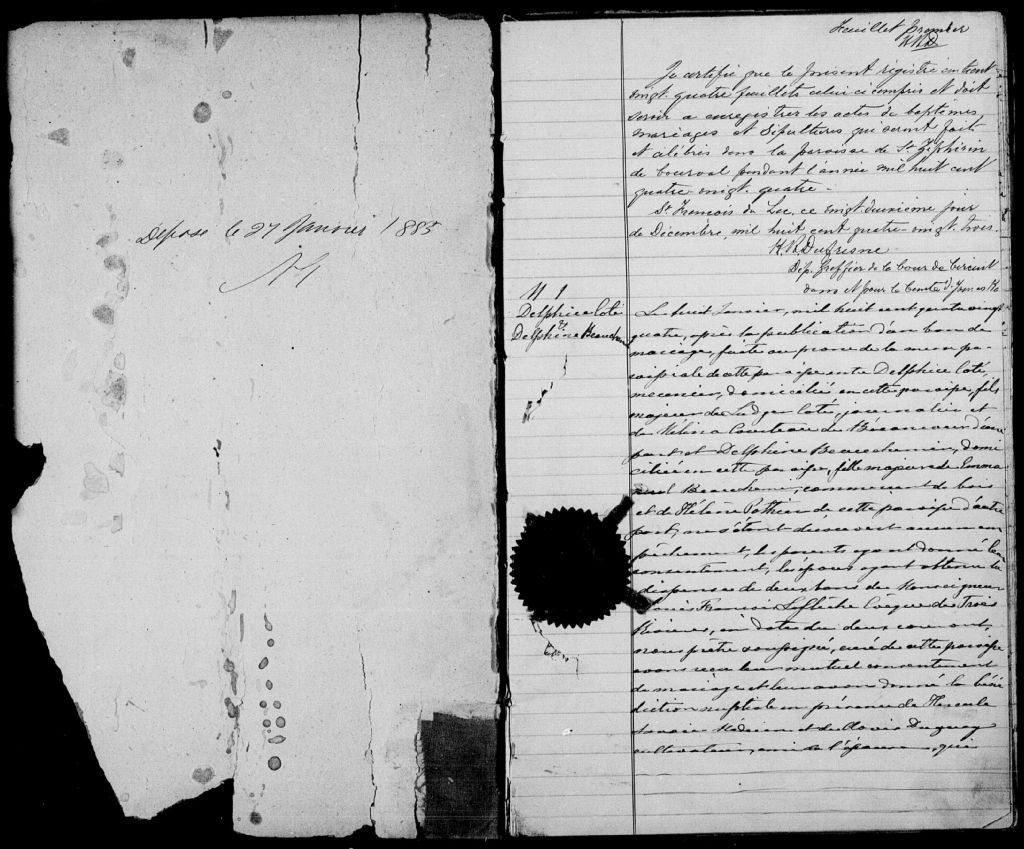 Déposé le 27 Janvier 1885
Feuillet premier
Je certifie que le présent registre contient
vingt quatre feuillets celui ci compris et doit
servir a enregistrer les actes de baptêmes
mariages et Sépultures qui seront faits
et célébrés dans la paroisse de St Zéphirin
de Courval pendant l'année mil huit cent
quatre-vingt quatre.
St François du Lac, ce vingt deuxième jour
de Décembre, mil huit cent quatre-vingt trois.
Dufresne
Dép. Greffier de la Cour de Circuit
dans et pour le Comté d'Yamaska
N 1
Delphice Coté
&
Delphine Beauchemin
Le huit Janvier, mil huit cent quatre vingt
quatre, après la publication d'un ban de
mariage faite au prône de la messe pa-
roissiale de cette paroisse entre Delphice Coté,
meunier, domicilié en cette paroisse, fils
majeur de Ludger Coté, journalier et
de Mélina Courteau de Bécancour d'une
part et Delphine Beauchemin, domi
ciliée en cette paroisse, fille majeure de Emma
nuel Beauchemin, commerçant de bois
et de Hélène Pothier de cette paroisse d'autre
part, ne s'étant découvert aucun em
pêchement, les parents ayant donné leur
consentement, les époux ayant obtenu la
dispense de deux bans de Monseigneur
Louis François Laflèche Evêque des Trois
Rivières, en date du deux courant,
nous prêtre soussigné, curé de cette paroisse
avons reçu leur mutuel consentement
de mariage et leur avons donné la béné
diction nuptiale en présence de Hercule
Médecin et de Clovis Duguay
cultivateur, ami de l'épouse, qui